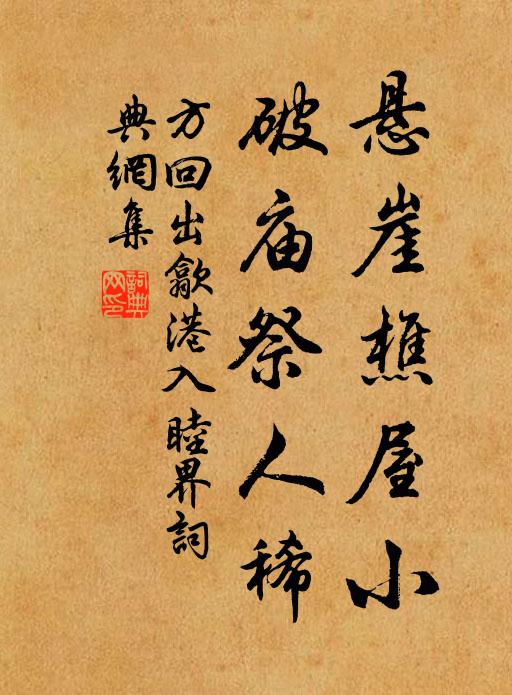 悬崖樵屋小
破庙祭人稀
方回出歙港入睦界詞
典網集
詞典网印